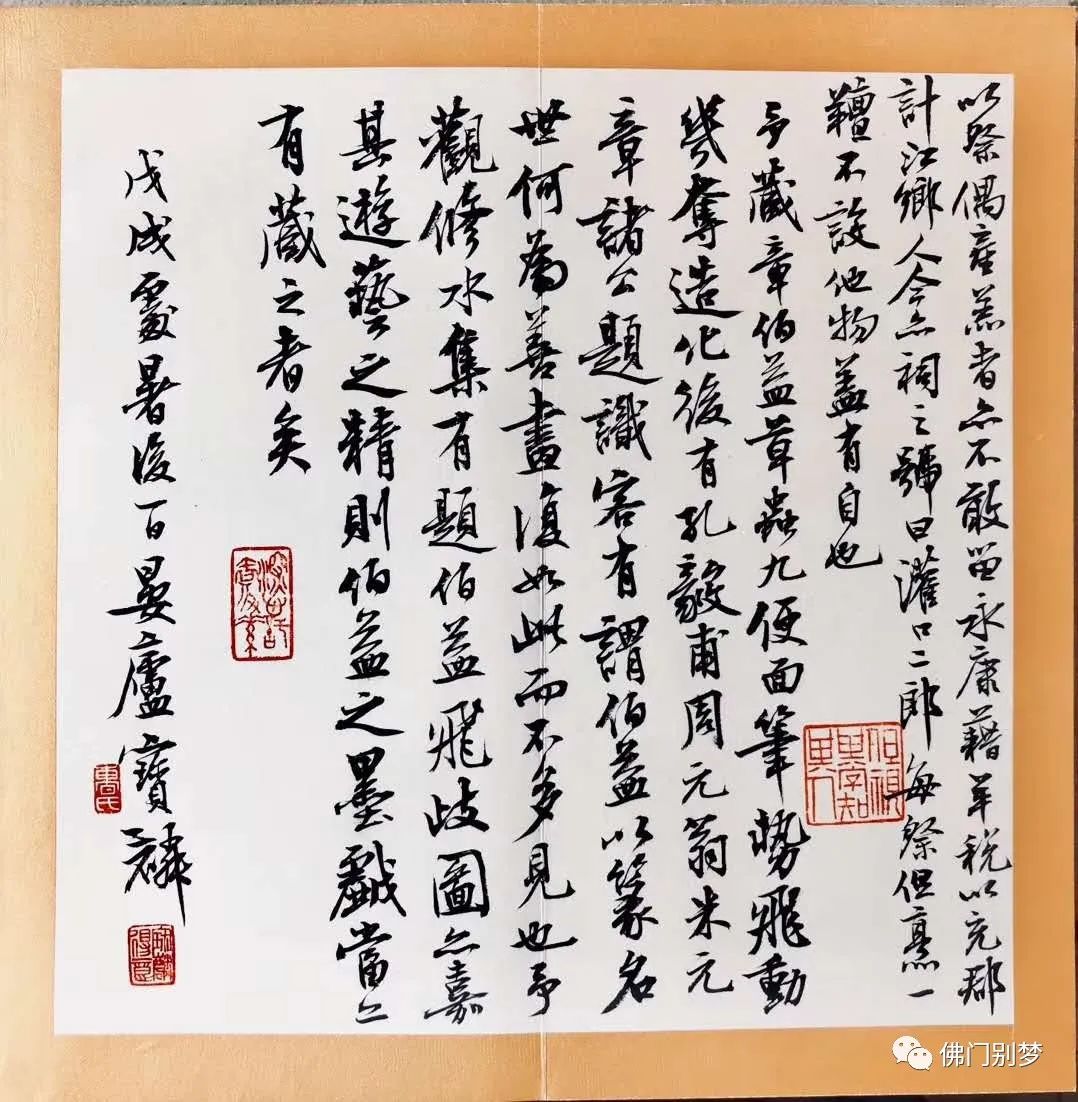 以祭偶産羔者亦不敢留永康藉羊税以充郡
計江鄉人今亦祠之號曰灌口二郎每祭但烹一
羶不設他物蓋有自也
予藏章伯益草蟲九便面筆勢飛動
幾奪造化後有孔毅甫周元翁米元
章諸公題識客有謂伯益以篆名
世何為善畫復如此而不多見也予
觀修水集有題伯益飛歧圖亦嘉
其遊藝之精則伯益之墨戲當亦
有藏之者矣
戊戌處暑後百晏廬寶麟
佛门别梦